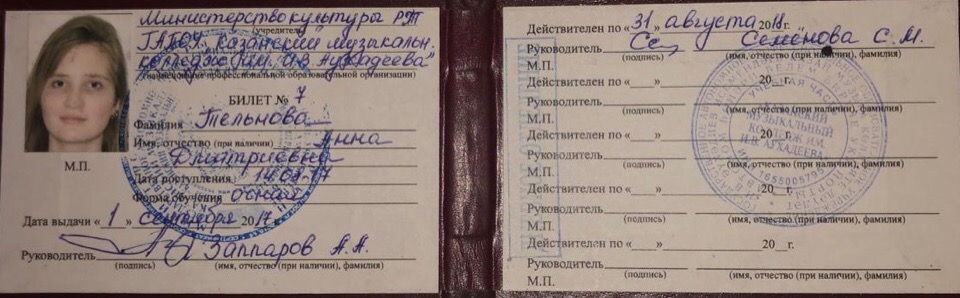 Министерство культуры РТ
(учредитель)
ГАПОУ "Казанский музыкальн.
колледж им. И.В. Аухадеева"
(наименование профессиональной образовательной организации)
БИЛЕТ № 7
Фамилия Тельнова
Имя, отчество (при наличии) Анна
Дмитриевна
Дата поступления 14.08.17
Форма обучения очная
М.П.
Дата выдачи «1» сентября 2017г.
Руководитель Заппаров А.А.
(подпись) (имя, отчество (при наличии), фамилия)
Действителен по «31» августа 2018г.
Руководитель Се Семёнова С.М.
(подпись) (имя, отчество (при наличии), фамилия)
М.П.
Действителен по «___» 20 г.
Руководитель
(подпись) (имя, отчество (при наличии), фамилия)
М.П.
Действителен по «___» 20 г.
Руководитель
(подпись) (имя, отчество (при наличии), фамилия)
М.П.
Действителен по «___» 20 г.
Руководитель
(подпись) (имя, отчество (при наличии), фамилия)
М.П.
Действителен по «___» 20 г.
Руководитель
(подпись) (имя, отчество (при наличии), фамилия)
М.П.
УЧЕБНАЯ ЧАСТЬ
КАЗАНСКИЙ
МУЗЫКАЛЬНЫЙ
КОЛЛЕДЖ ИМ.
И.В. АУХАДЕЕВА